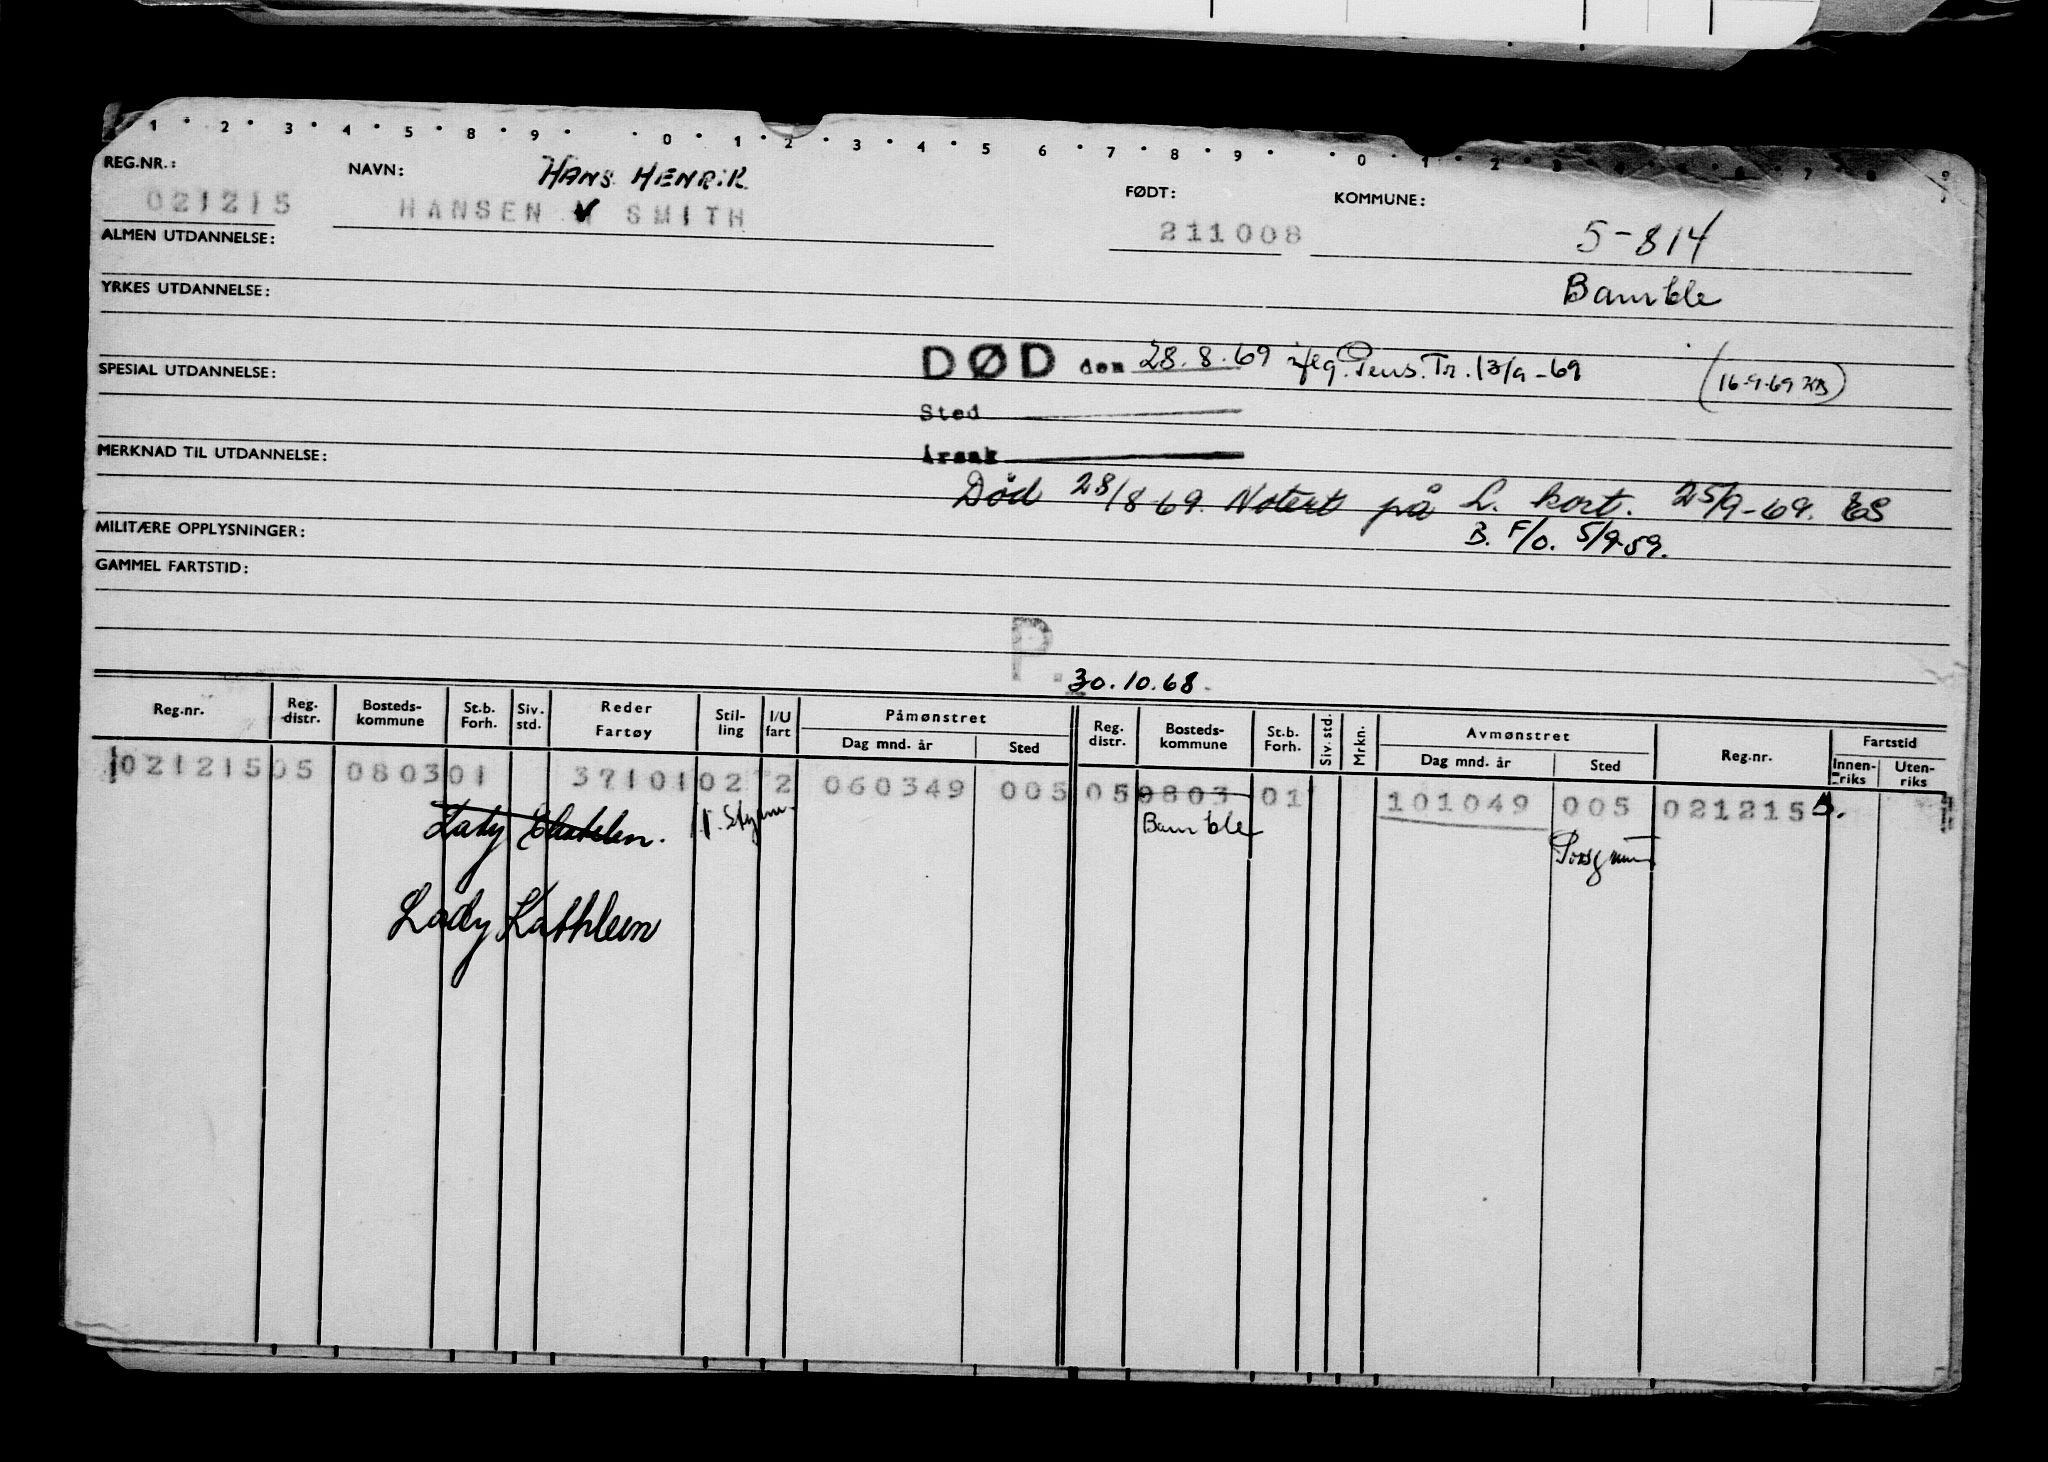 1 • 2 • 3 • 4 • 5 • 8 • 9 • • 0 • 1 • 2 • 3 • 4 • 5 6 • 7 • 8 • 9 • • 0 • 1 • 2 3 7 8 9
REG.NR.: NAVN: HANS HENRIK FØDT: KOMMUNE:
021215 HANSEN SMITH 211008 5-814
ALMEN UTDANNELSE:
YRKES UTDANNELSE: Bamble
DØD den 28.8.69 iflg. Pens. Tr. 13/9-69 (16-9-69 KB)
SPESIAL UTDANNELSE:
Sted
MERKNAD TIL UTDANNELSE: Årsak
Død 28/8 69. Notert på L. kort. 25/9-69. ES
MILITÆRE OPPLYSNINGER: B. F/O. 5/9-59.
GAMMEL FARTSTID:
P. 30.10.68.
Reg.nr. Reg. distr. Bosteds-kommune St.b. Forh. Siv. std. Reder Fartøy Stil-ling I/U fart Påmønstret Reg. distr. Bosteds-kommune St.b. Forh. Siv. std. Mrkn. Avmønstret Reg.nr. Fartstid
Dag mnd. år Sted Dag mnd. år Sted Innen-riks Uten-riks
021215 05 0803 01 37101 02 2 060349 005 05 0803 01 101049 005 021215
Lady 1. Styrm. Bamble Porsgrunn
Lady Kathleen